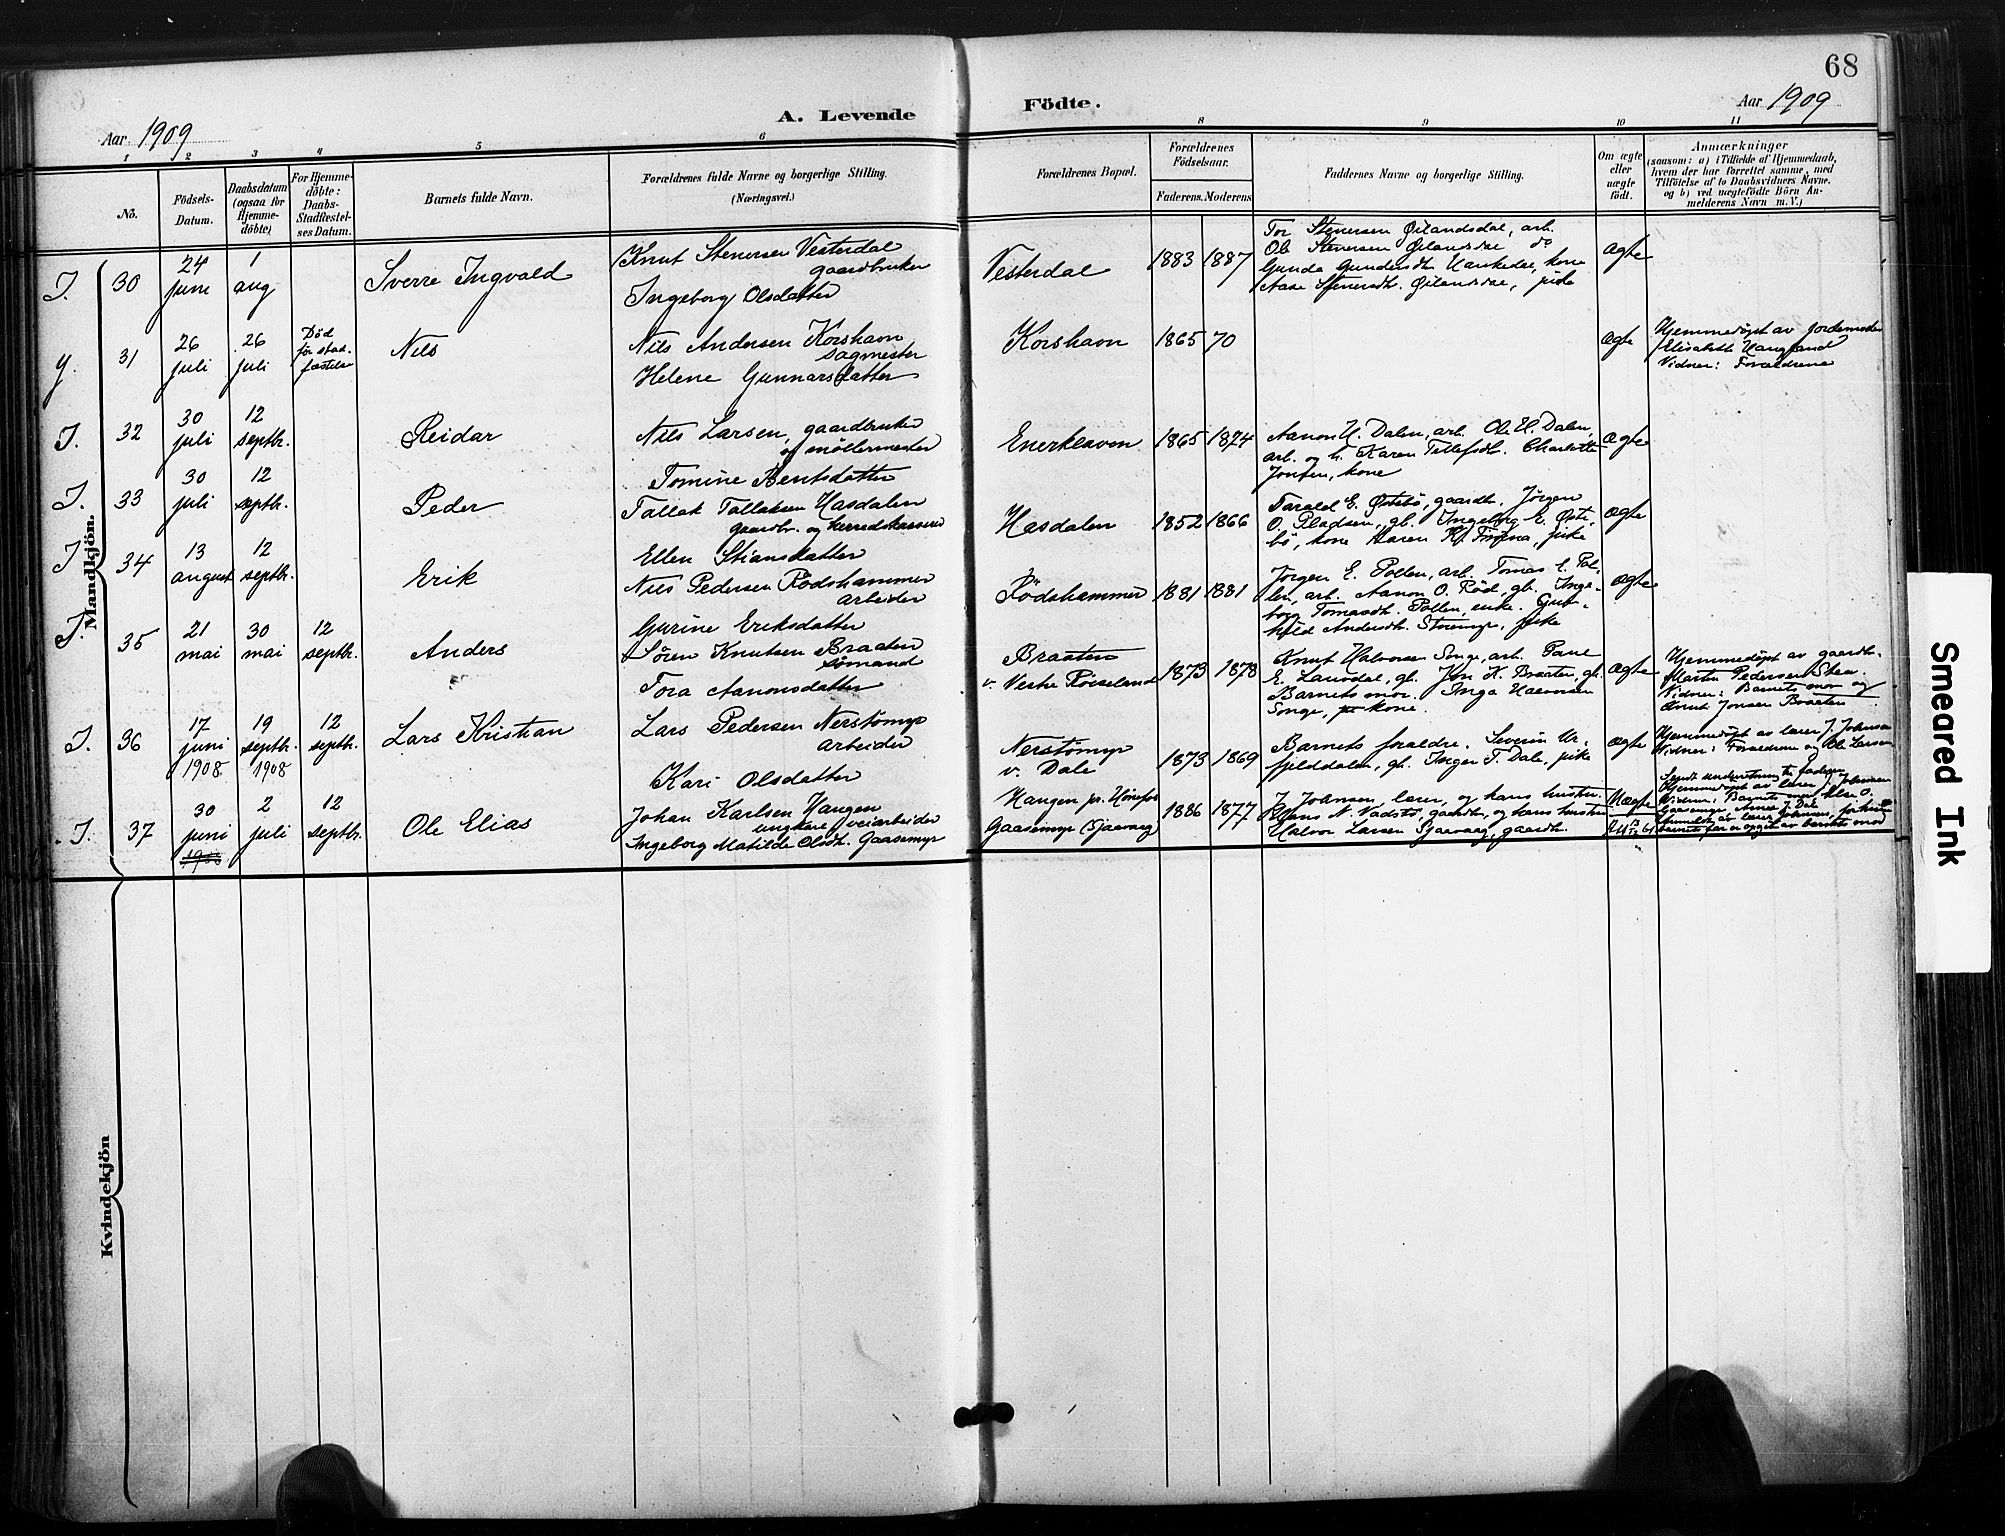 68
A. Levende Födte.
Aar 1909
Aar 1909
1 2 3 4 5 6 8 9 10 11
Nô.
Födsels-
Datum.
Daabsdatum
(ogsaa for
Hjemme-
döbte)
For Hjemme-
döbte:
Daabs-
Stadfæstel-
ses Datum.
Barnets fulde Navn.
Forældrenes fulde Navne og borgerlige Stilling.
(Næringsvei.)
Forældrenes Bopæl.
Forældrenes
Födselsaar.
Faderens. Moderens
Faddernes Navne og borgerlige Stilling.
Om ægte
eller
uægte
födt.
Anmærkninger
(saasom: a) i Tilfælde af Hjemmedaab,
hvem der har forrettet samme, med
Tilföielse af to Daabsvidners Navne.
og b) ved uægtefödte Börn An-
melderens Navn m. V.)
Mandkjön.
I. 30
24
juni
1
aug
Sverre Ingvald
Knut Stenersen Vesterdal
gaardbruker
Ingeborg Olsdatter
Vesterdal
1883 1887
Tor Stenersen Øilandsdal, arb.
Ole Stenersen Do
Gunda Gundersdt. kone
Aase Stenersdt. pike
ægte
y. 31
26
juli
26
juli
Død
før stad-
fæstelse
Nils
Nils Andersen Korshavn
sagmester
Helene Gunnarsdatter
Korshavn
1865 70
ægte
Hjemmedøpt av jordemoder
Elisabeth Haugland
Vidner: Forældrene
I. 32
30
juli
12
septbr.
Reidar
Nils Larsen, gaardbruker
og møllermester
Tomine Bentsdatter
Enerkleven
1865 1874
Aanon H. Dalen, arb. Ole H. Dalen,
arb. og h. Karen Tellefsdt. Charlotte
Jonsen, kone
ægte
I. 33
30
juli
12
septbr.
Peder
Tallak Tallaksen Hasdalen
gaardbr. og herredskasserer
Ellen Stiansdatter
Hasdalen
1852 1866
Tarald E. Østebö, gaardbr. Jørgen
O. Pladsen, gl. Ingeborg E. Øste-
bö, kone Maren K. pike
ægte
I 34
13
august
12
septbr.
Erik
Nils Pedersen Rödshammer
arbeider
Gurine Eriksdatter
Rödshammer
1881 1881
Jørgen E. Pollen, arb. Tomas E. Pol-
len, arb. Aanon O. Röd, gl. Inge-
borg Tomasdt. Pollen, enke. Gun-
hild Andersdt. Storemyr, pike
ægte
I. 35
21
mai
30
mai
12
septbr.
Anders
Søren Knutsen Braaten
sømand
Tora Aanonsdatter
Braaten
v. Vestre Röiseland
1873 1878
Knut Halvorsen Songe, arb. Pane
E. Lauvdal, gl. Jon K. Braaten, gl.
Barnets mor. Inga Halvorsen
Songe, kone.
ægte
Hjemmedøpt av gaardbr.
Martin Pedersen Stea
Vidner: Barnets mor og
Knut Jonsen Braaten
I. 36
17
juni
1908
19
septbr.
1908
12
septbr.
Lars Kristian
Lars Pedersen Nerstømyr
arbeider
Kari Olsdatter
Nerstømyr
v. Dale
1873 1869
Barnets forældre. Severin Ur-
fjelddalen, gl. Inger T. Dale, pike
ægte
Hjemmedøpt av lærer J. Johnsen
Vidner: Forældrene og Ole Larsen
I. 37
30
juni
1908
2
juli
12
septbr.
Ole Elias
Johan Karlsen Haugen
ungkar, veiarbeider
Ingeborg Matilde Olsdt. Gaasemyr
Haugen pr. Hönefos
Gaasemyr (Sjaavaag
1886 1877
J. Johnsen, lærer, og hans hustru.
Hans N. Vadstö, gaardbr, og hans hustru
Halvor Larsen Sjaavaag, gaardbr.
Uægte
Sendt underretning til faderen
Hjemmedøpt av lærer J. Johnsen
Vidner: Barnets mor, Else O.
Gaasemyr, J. Dale
Anmeldt av lærer Johnsen,
barnets far er opgit av barnets mor
Kvindekjön
Smeared Ink